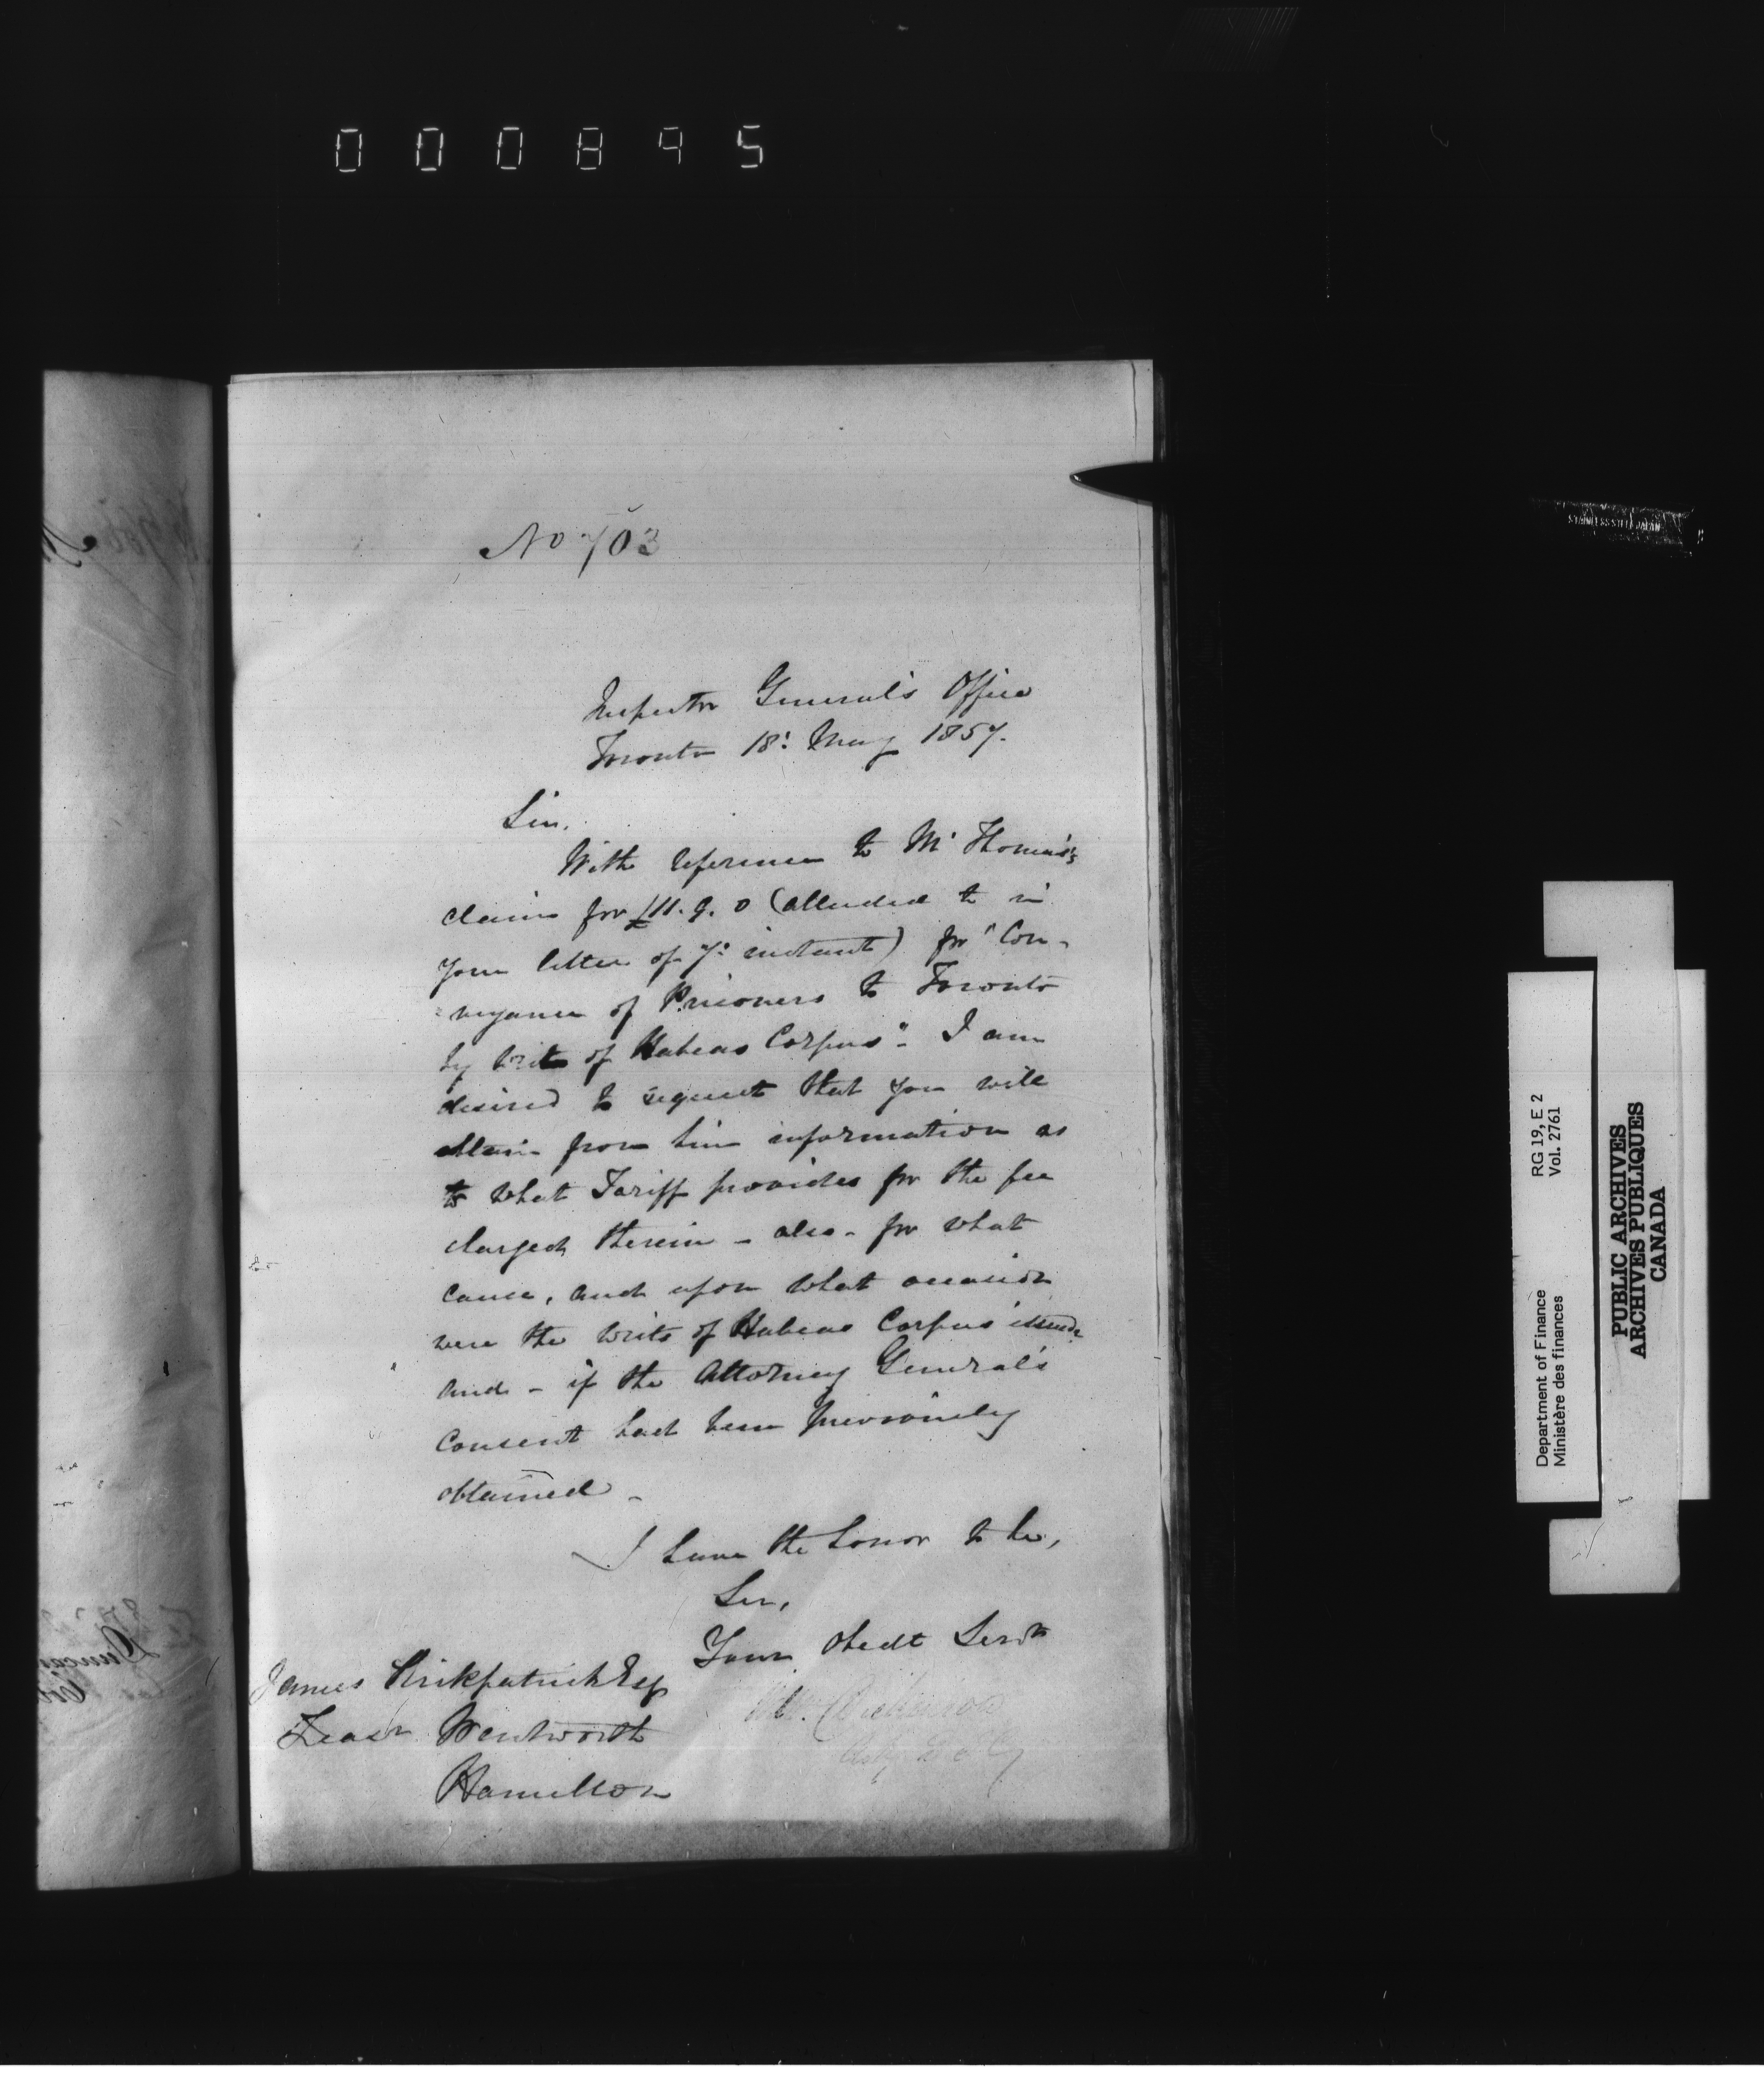 000895
No 703
Inspector General's Office
Toronto 18: May 1857.
Sir,
With reference to Mr Thomas's
claim for £11. 9. 0 (alluded to in
your letter of 7: instant) for "Con-
=veyance of Prisoners to Toronto
by Writ of Habeas Corpus" - I am
desired to request that you will
obtain from him information as
to what Tariff provides for the fee
charged therein - also - for what
cause, and upon what occasion
were the Writs of Habeas Corpus issued
and - if the Attorney General's
consent had been previously
obtained -
I have the honor to be,
Sir,
Your Obedt Servt
Wm. Dickinson
James Kirkpatrick Esq
Treasr Wentworth
Hamilton
Department of Finance RG 19, E 2
Ministère des finances Vol. 2761
PUBLIC ARCHIVES
ARCHIVES PUBLIQUES
CANADA